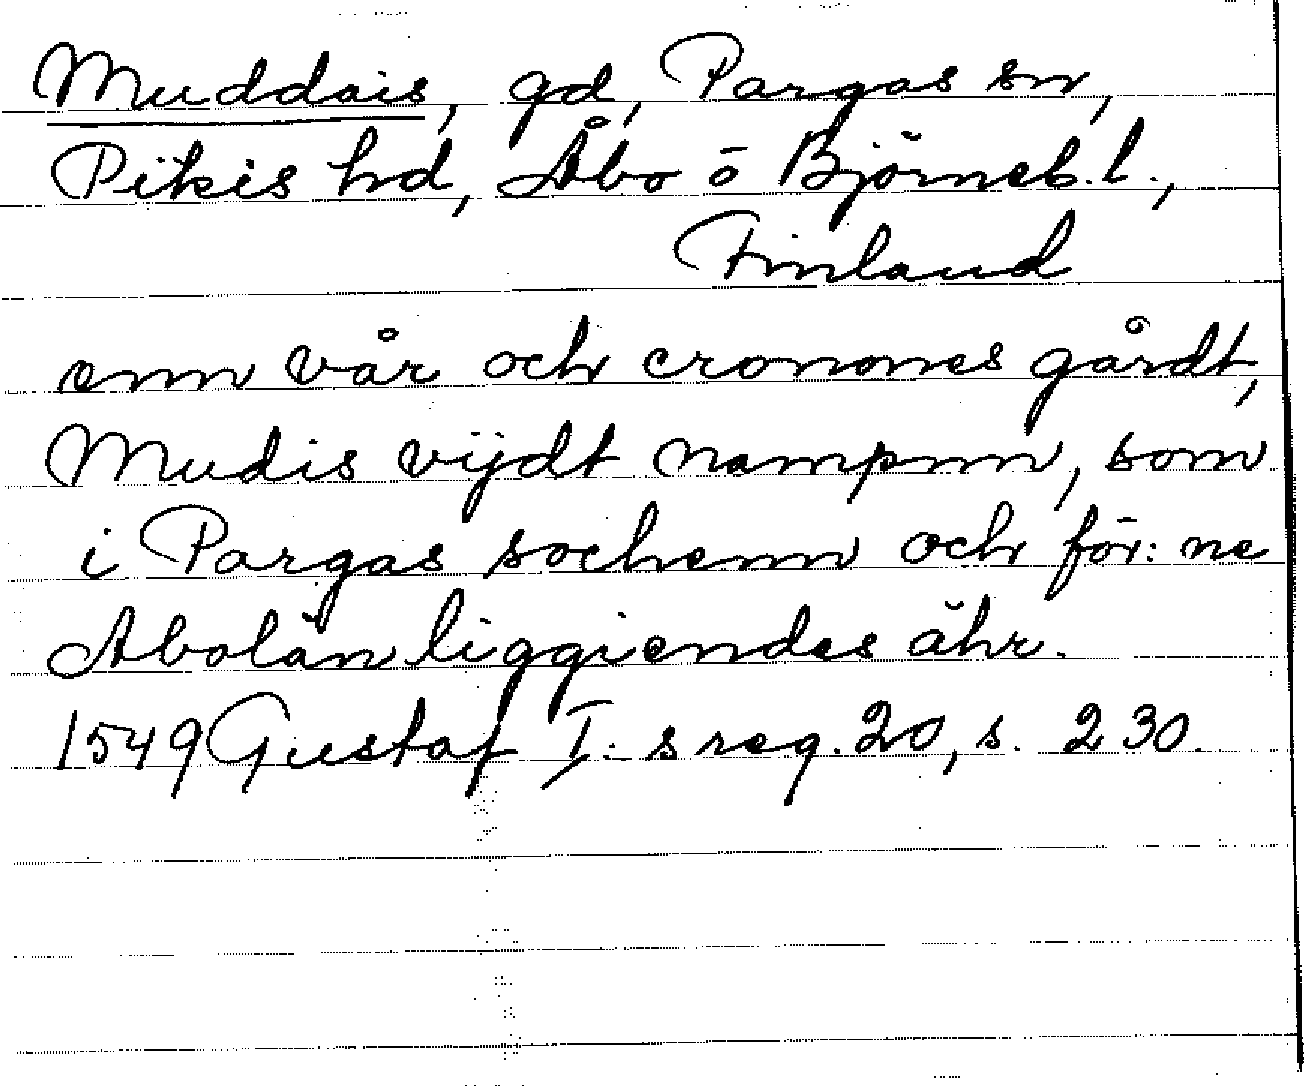 Muddais, gd, Pargas sn,
Pikis hd, Åbo ö Björneb. l.,
Finland
enn vår och cronones gårdt,
Mudis vijdt nampnn, som
i Pargas sochenn och för: ne
Abolän liggiendes ähr.
1549 Gustaf I: s reg. 20, s. 230.